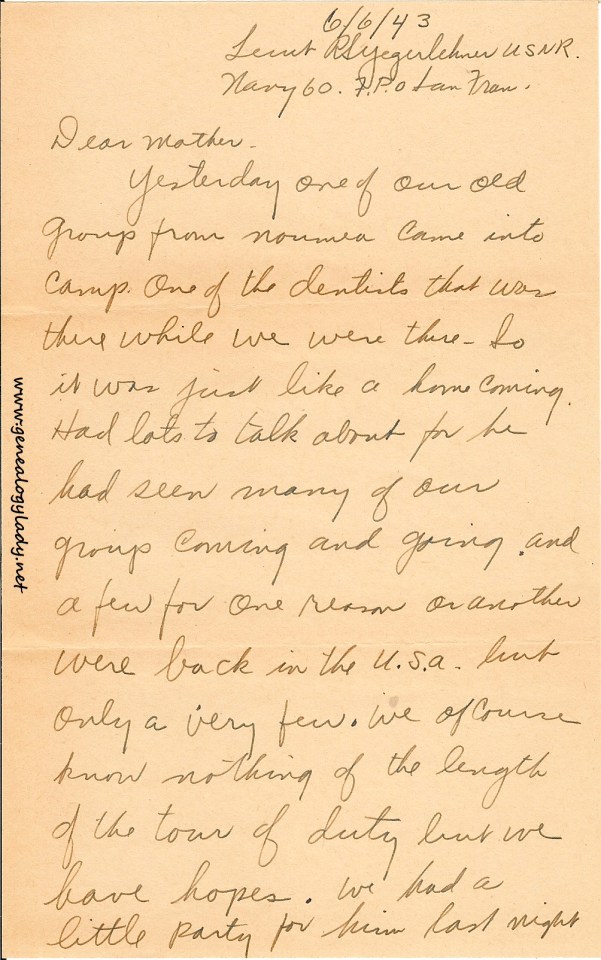 6/6/43
Lieut RSYegerlehner USNR.
Navy 60. F.P.O San Fran.
Dear Mother.
Yesterday one of our old
group from noumea came into
camp. One of the dentists that was
there while we were there - So
it was just like a home coming.
Had lots to talk about for he
had seen many of our
group coming and going. and
a few for one reason or another
were back in the U.S.A. but
only a very few. We of course
know nothing of the length
of the tour of duty but we
have hopes. We had a
little party for him last night
www.genealogylady.net